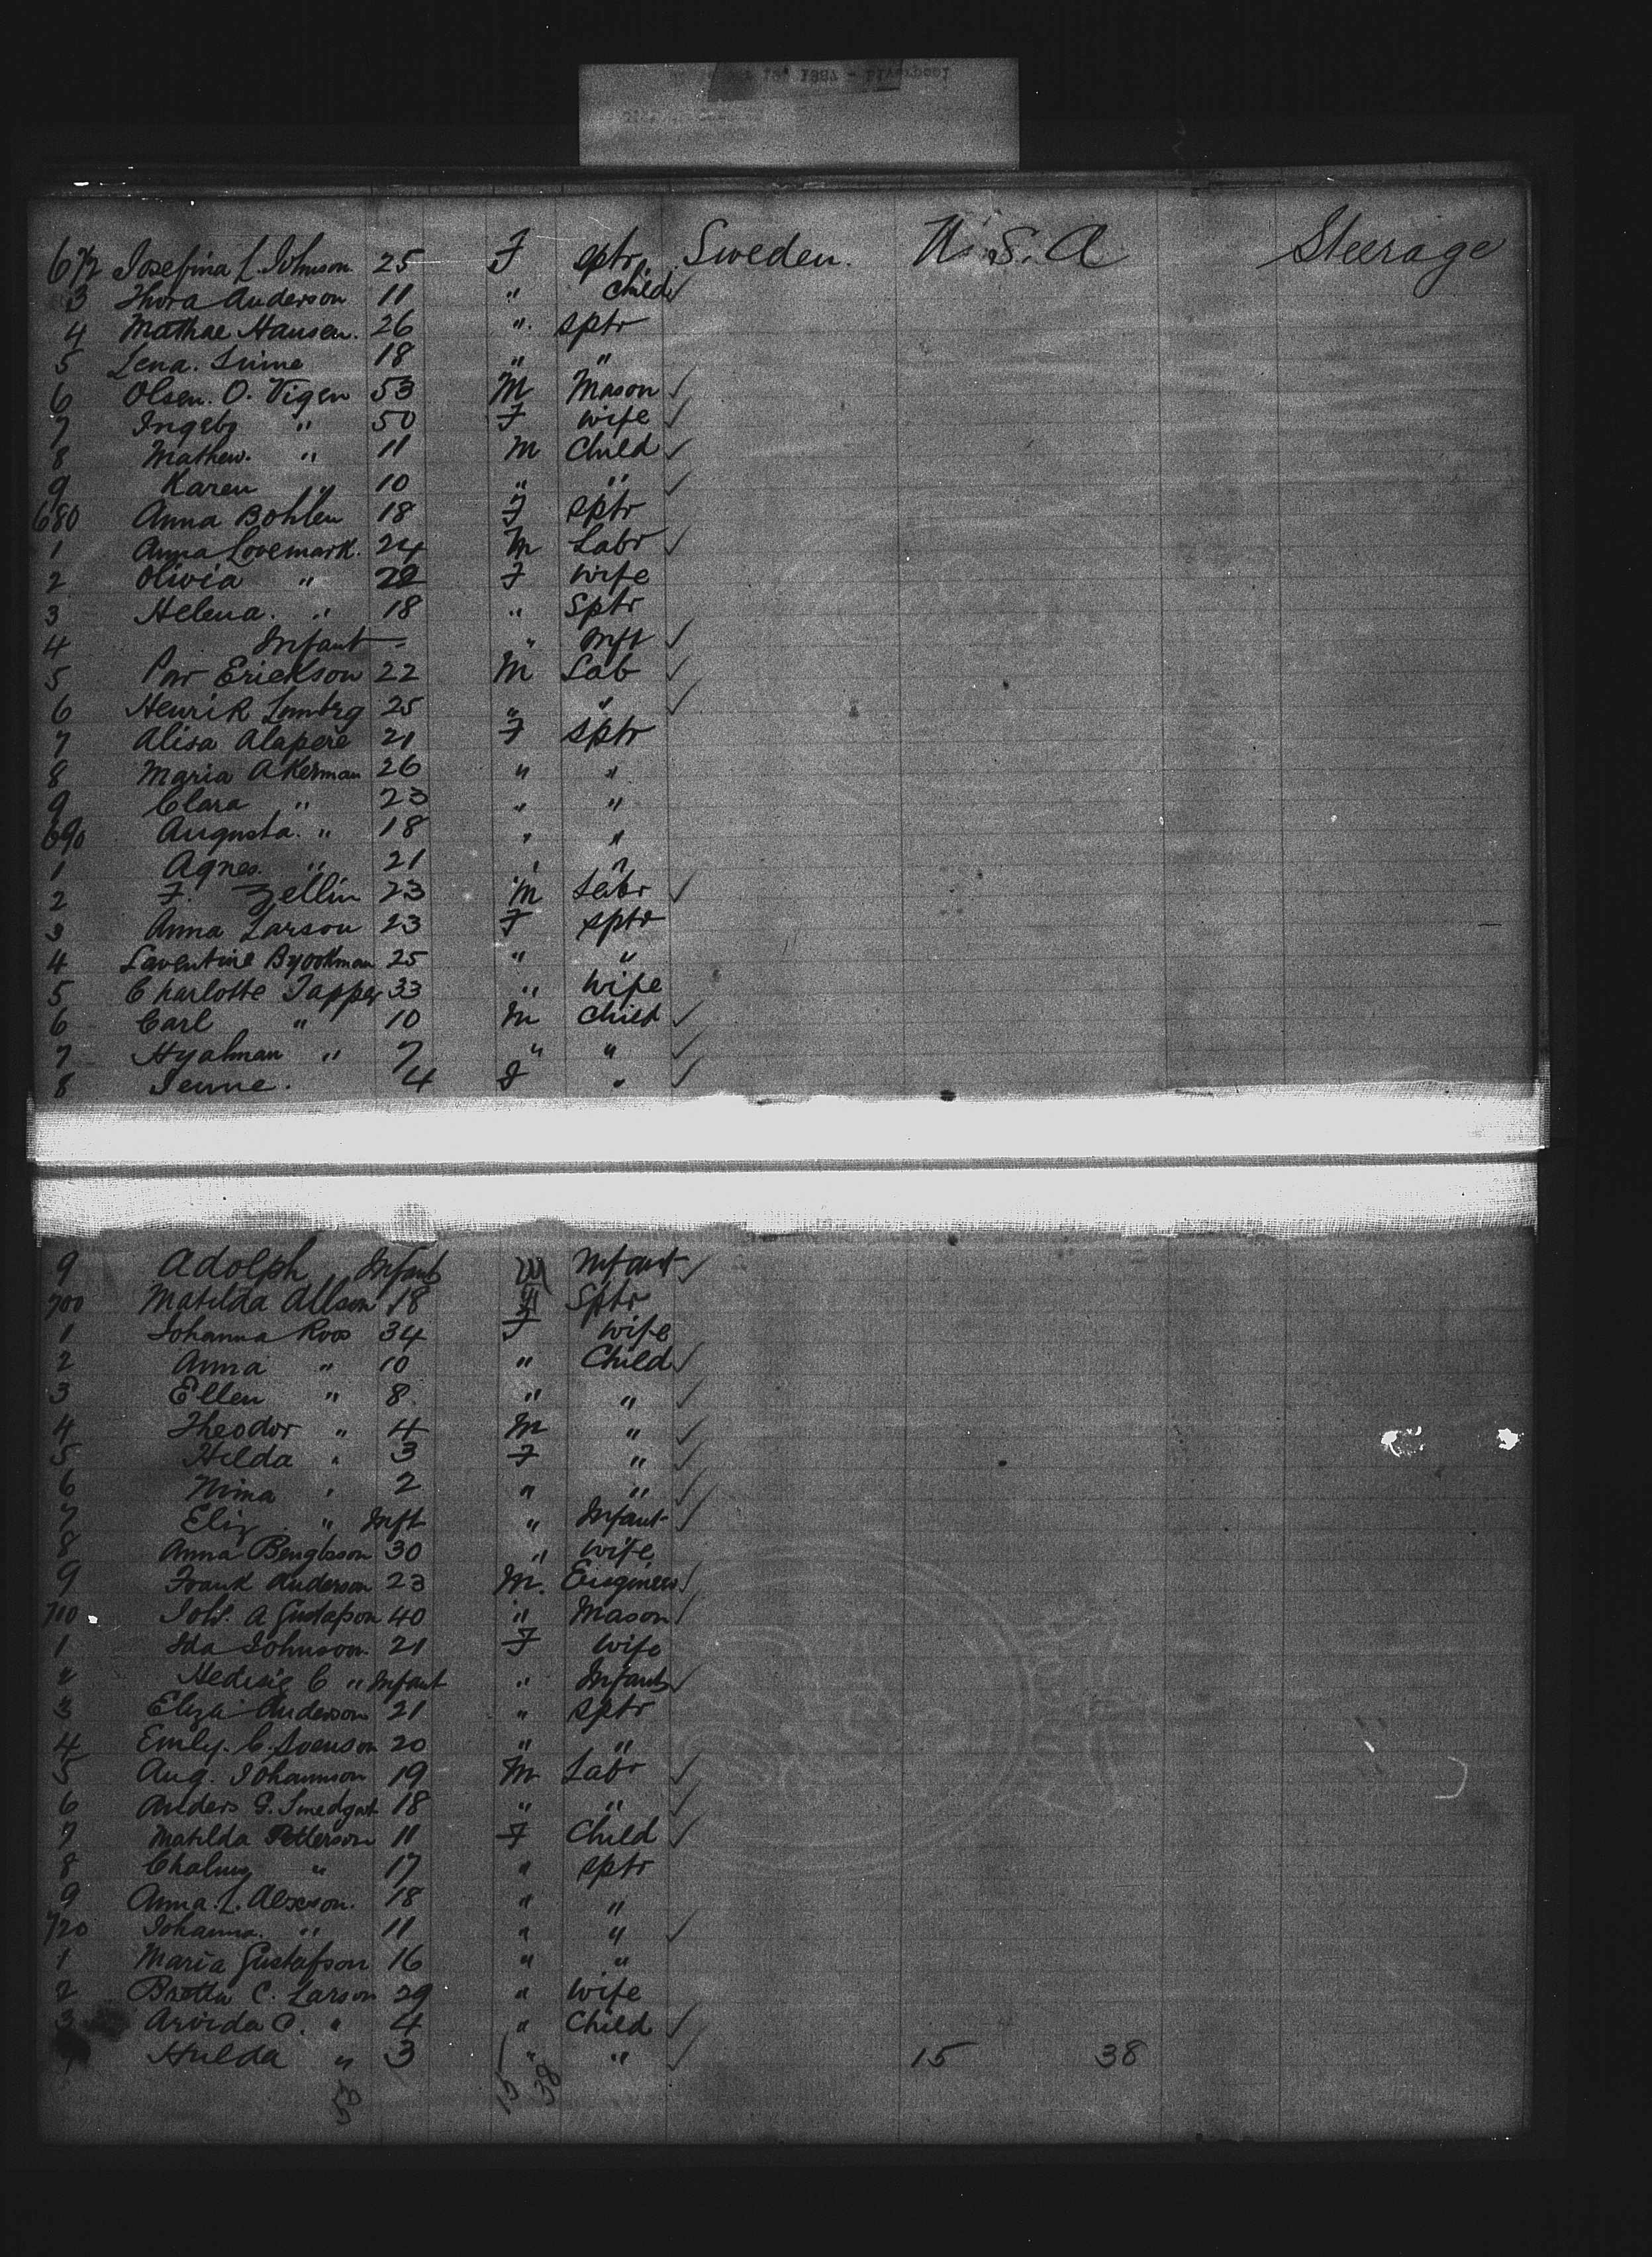 672 Josefina L. Johnson 25 F sptr Sweden. U.S.A Steerage
3 Thora Anderson 11 " Child ✓
4 Mathae Hansen. 26 " sptr
5 Lena. 18 " "
6 Olsen. O. Vigen 53 M Mason ✓
7 Ingebg " 50 F Wife ✓
8 Mathew. " 11 M Child ✓
9 Karen " 10 " " ✓
680 Anna Bohlen 18 F sptr
1 Anna Lovemark. 24 M Labr ✓
2 Olivia " 22 F Wife
3 Helena. " 18 " Sptr
4 Infant - " Inft ✓
5 Erickson 22 M Lab ✓
6 Henrik Lombrg 25 " " ✓
7 Alisa Alapere 21 F sptr
8 Maria Akerman 26 " "
9 Clara " 23 " "
690 Augusta. " 18 " "
1 Agnes. " 21 " "
2 F. Zellin 23 M Labr ✓
3 Anna Larson 23 F sptr
4 Laventine Byookman 25 " "
5 Charlotte Tapper 33 " Wife
6 Carl " 10 M Child ✓
7 Hyalman " 7 " " ✓
8 Jenne. 4 F " ✓
9 Adolph Infant M Infant ✓
700 Matilda Allson 18 F Sptr
1 Johanna Roos 34 F Wife
2 Anna " 10 " Child ✓
3 Ellen " 8 " " ✓
4 Theodor " 4 M " ✓
5 Hilda " 3 F " ✓
6 Nima " 2 " " ✓
7 Eliz " Inft " Infant ✓
8 Anna Bengtsson 30 " Wife
9 Frank Anderson 23 M. Engineer ✓
710 Joh. A Gustafson 40 " Mason ✓
1 Ida Johnson 21 F Wife
2 Hedwig C " Infant " Infant ✓
3 Eliza Anderson 21 " sptr
4 Emly. C. Svenson 20 " "
5 Aug. Johannson 19 M Labr ✓
6 Anders G. Smedgat 18 " " ✓
7 Matilda Petterson 11 F Child ✓
8 " 17 " sptr
9 Anna. L. Alexson. 18 " "
720 Johanna. " 11 " " ✓
1 Maria Gustafson 16 " "
2 C. Larson 29 " Wife
3 Arvida C. " 4 " Child ✓
Hulda " 3 " " ✓ 15 38
53 15 38